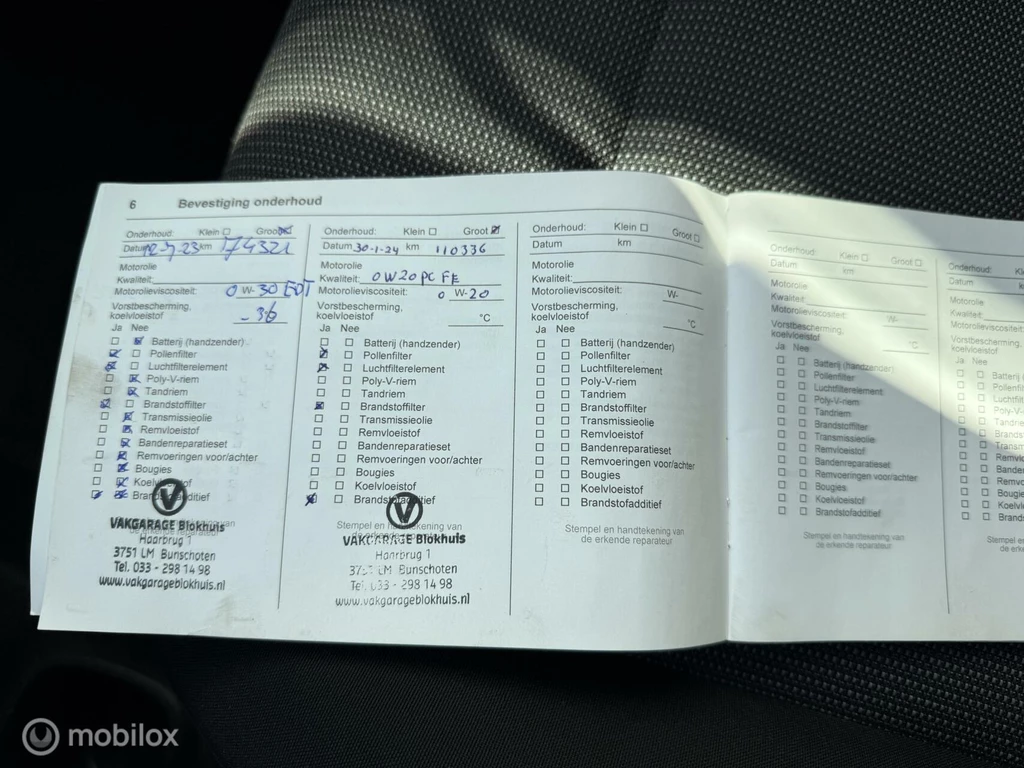 6 Bevestiging onderhoud
Onderhoud: Klein Groot
Datum 12-7-23 km 174321
Motorolie
Kwaliteit:
Motorolieviscositeit: 0 W- 30 EDT
Vorstbescherming,
koelvloeistof -36
Ja Nee
Batterij (handzender)
Pollenfilter
Luchtfilterelement
Poly-V-riem
Tandriem
Brandstoffilter
Transmissieolie
Remvloeistof
Bandenreparatieset
Remvoeringen voor/achter
Bougies
Koelvloeistof
Brandstofadditief
VAKGARAGE Blokhuis
Haarbrug 1
3751 LM Bunschoten
Tel. 033 - 298 14 98
www.vakgarageblokhuis.nl
Onderhoud: Klein Groot
Datum 30-1-24 km 110336
Motorolie
Kwaliteit: 0W20 PC FE
Motorolieviscositeit: 0 W-20
Vorstbescherming,
koelvloeistof °C
Ja Nee
Batterij (handzender)
Pollenfilter
Luchtfilterelement
Poly-V-riem
Tandriem
Brandstoffilter
Transmissieolie
Remvloeistof
Bandenreparatieset
Remvoeringen voor/achter
Bougies
Koelvloeistof
Brandstofadditief
Stempel en handtekening van
de erkende reparateur
VAKGARAGE Blokhuis
Haarbrug 1
3751 LM Bunschoten
Tel. 033 - 298 14 98
www.vakgarageblokhuis.nl
Onderhoud: Klein Groot
Datum km
Motorolie
Kwaliteit:
Motorolieviscositeit: W-
Vorstbescherming,
koelvloeistof °C
Ja Nee
Batterij (handzender)
Pollenfilter
Luchtfilterelement
Poly-V-riem
Tandriem
Brandstoffilter
Transmissieolie
Remvloeistof
Bandenreparatieset
Remvoeringen voor/achter
Bougies
Koelvloeistof
Brandstofadditief
Stempel en handtekening van
de erkende reparateur
Onderhoud: Klein Groot
Datum km
Motorolie
Kwaliteit:
Motorolieviscositeit: W-
Vorstbescherming,
koelvloeistof °C
Ja Nee
Batterij (handzender)
Pollenfilter
Luchtfilterelement
Poly-V-riem
Tandriem
Brandstoffilter
Transmissieolie
Remvloeistof
Bandenreparatieset
Remvoeringen voor/achter
Bougies
Koelvloeistof
Brandstofadditief
Stempel en handtekening van
de erkende reparateur
Onderhoud:
Datum
Motorolie
Kwaliteit:
Motorolieviscositeit
Vorstbescherming,
koelvloeistof
Ja Nee
Stempel en
de erk
mobilox